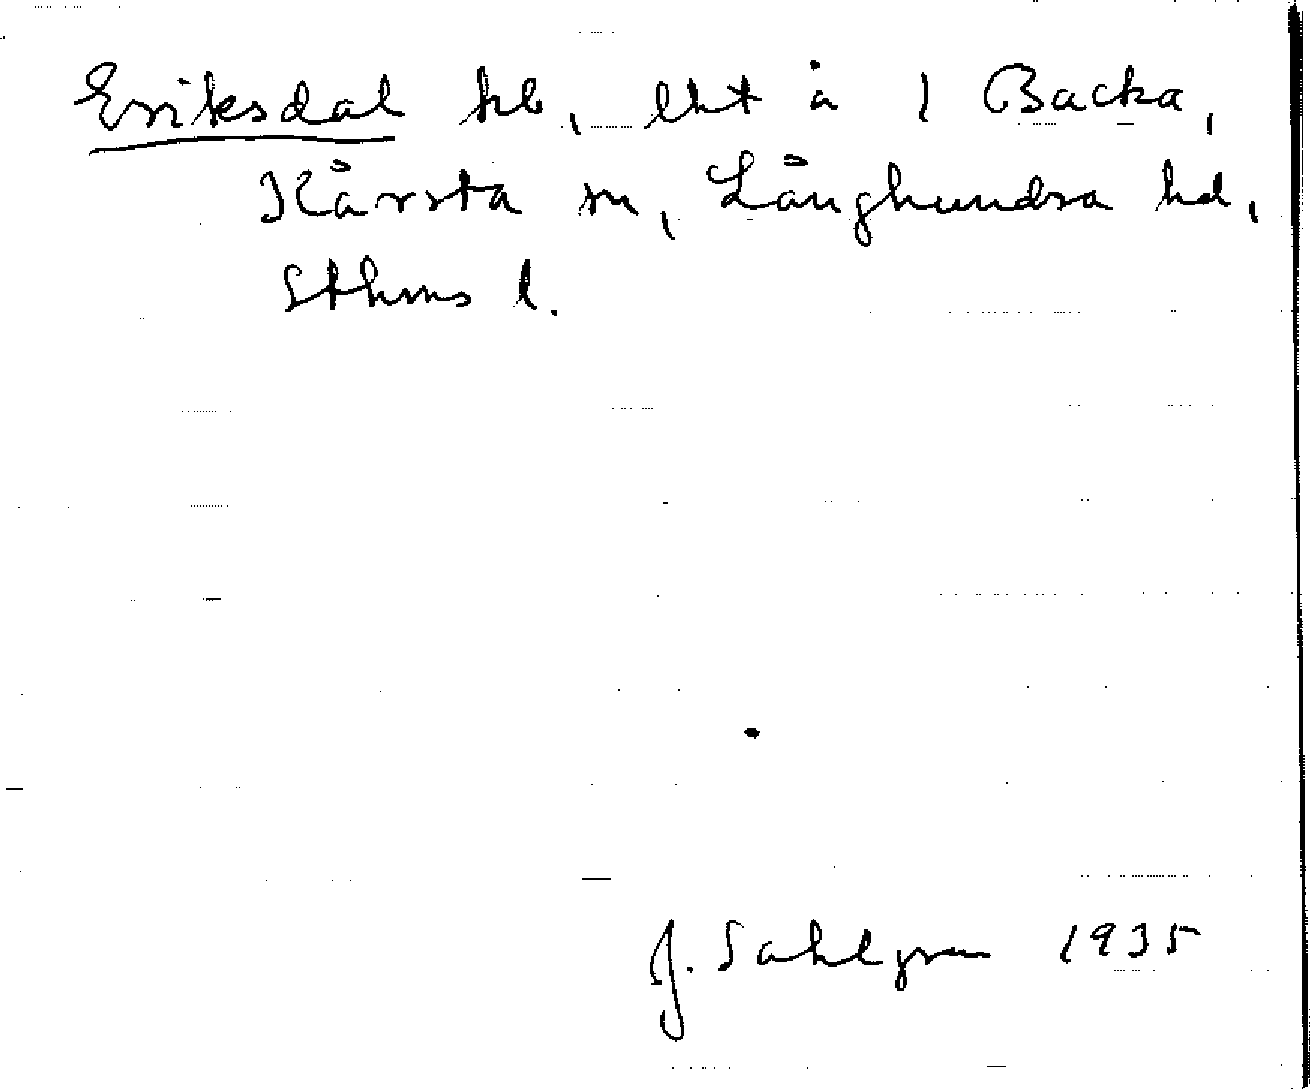 Eriksdal hb, lht å 1 Backa,
Kårsta sn, Långhundra hd,
Sthms l.
J. Sahlgren 1935